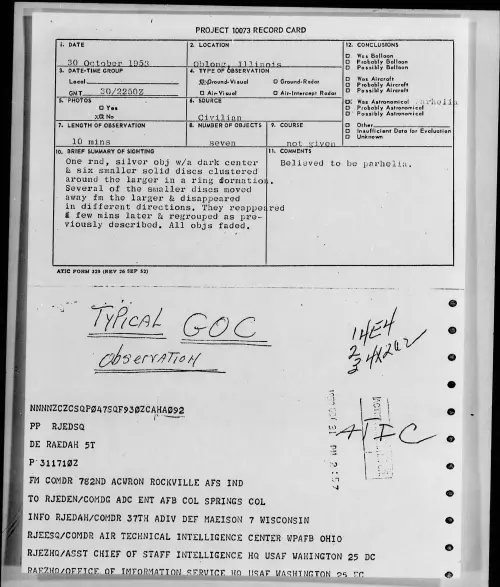 PROJECT 10073 RECORD CARD
1. DATE
30 October 1953
2. LOCATION
Oblong, Illinois
12. CONCLUSIONS
□ Was Balloon
□ Probably Balloon
□ Possibly Balloon
□ Was Aircraft
□ Probably Aircraft
□ Possibly Aircraft
☒ Was Astronomical Parhelia
□ Probably Astronomical
□ Possibly Astronomical
□ Other
□ Insufficient Data for Evaluation
□ Unknown
3. DATE-TIME GROUP
Local
GMT 30/2250Z
4. TYPE OF OBSERVATION
☒ Ground-Visual □ Ground-Radar
□ Air-Visual □ Air-Intercept Radar
5. PHOTOS
□ Yes
☒ No
6. SOURCE
Civilian
7. LENGTH OF OBSERVATION
10 mins
8. NUMBER OF OBJECTS
seven
9. COURSE
not given
10. BRIEF SUMMARY OF SIGHTING
One rnd, silver obj w/a dark center
& six smaller solid discs clustered
around the larger in a ring formation.
Several of the smaller discs moved
away fm the larger & disappeared
in different directions. They reappeared
& few mins later & regrouped as pre-
viously described. All objs faded.
11. COMMENTS
Believed to be parhelia.
ATIC FORM 329 (REV 26 SEP 52)
TYPICAL GOC
OBSERVATION
14E4
2
3 4X2a2
ATIC
NNNNZCZCSQP047SQF930ZCAHA092
PP RJEDSQ
DE RAEDAH 5T
P 311710Z
FM COMDR 782ND ACWRON ROCKVILLE AFS IND
TO RJEDEN/COMDG ADC ENT AFB COL SPRINGS COL
INFO RJEDAH/COMDR 37TH ADIV DEF MAEISON 7 WISCONSIN
RJEESQ/COMDR AIR TECHNICAL INTELLIGENCE CENTER WPAFB OHIO
RJEZHQ/ASST CHIEF OF STAFF INTELLIGENCE HQ USAF WAHINGTON 25 DC
RAEZHQ/OFFICE OF IMFORMATION SERVICE HQ USAF WASHINGTON 25 DC